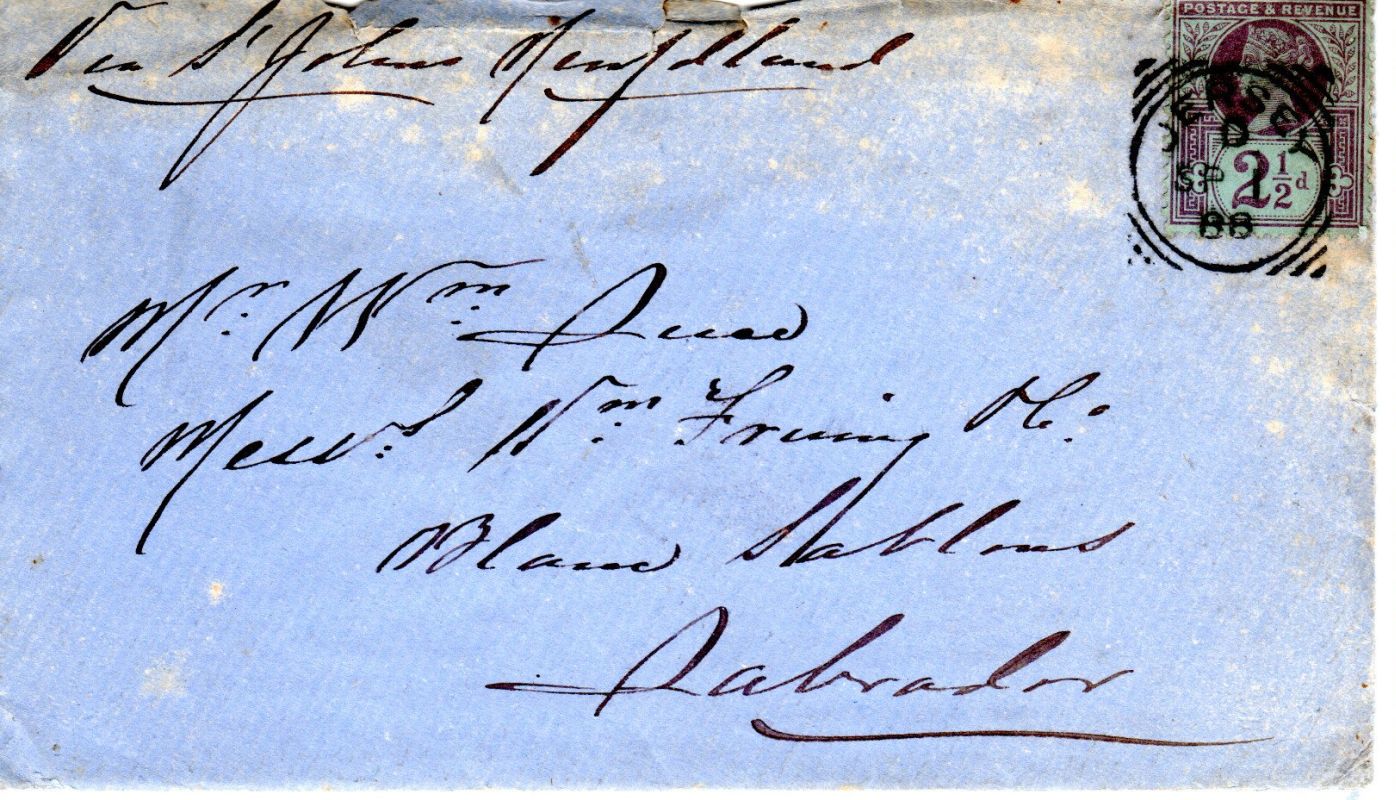 Via St Johns Newfdland
POSTAGE & REVENUE
2½d
JERSEY
D
SP 1
88
Mr. Wm. Luce
Messrs. Wm. Fruing & Co.
Blanc Sablons
Labrador